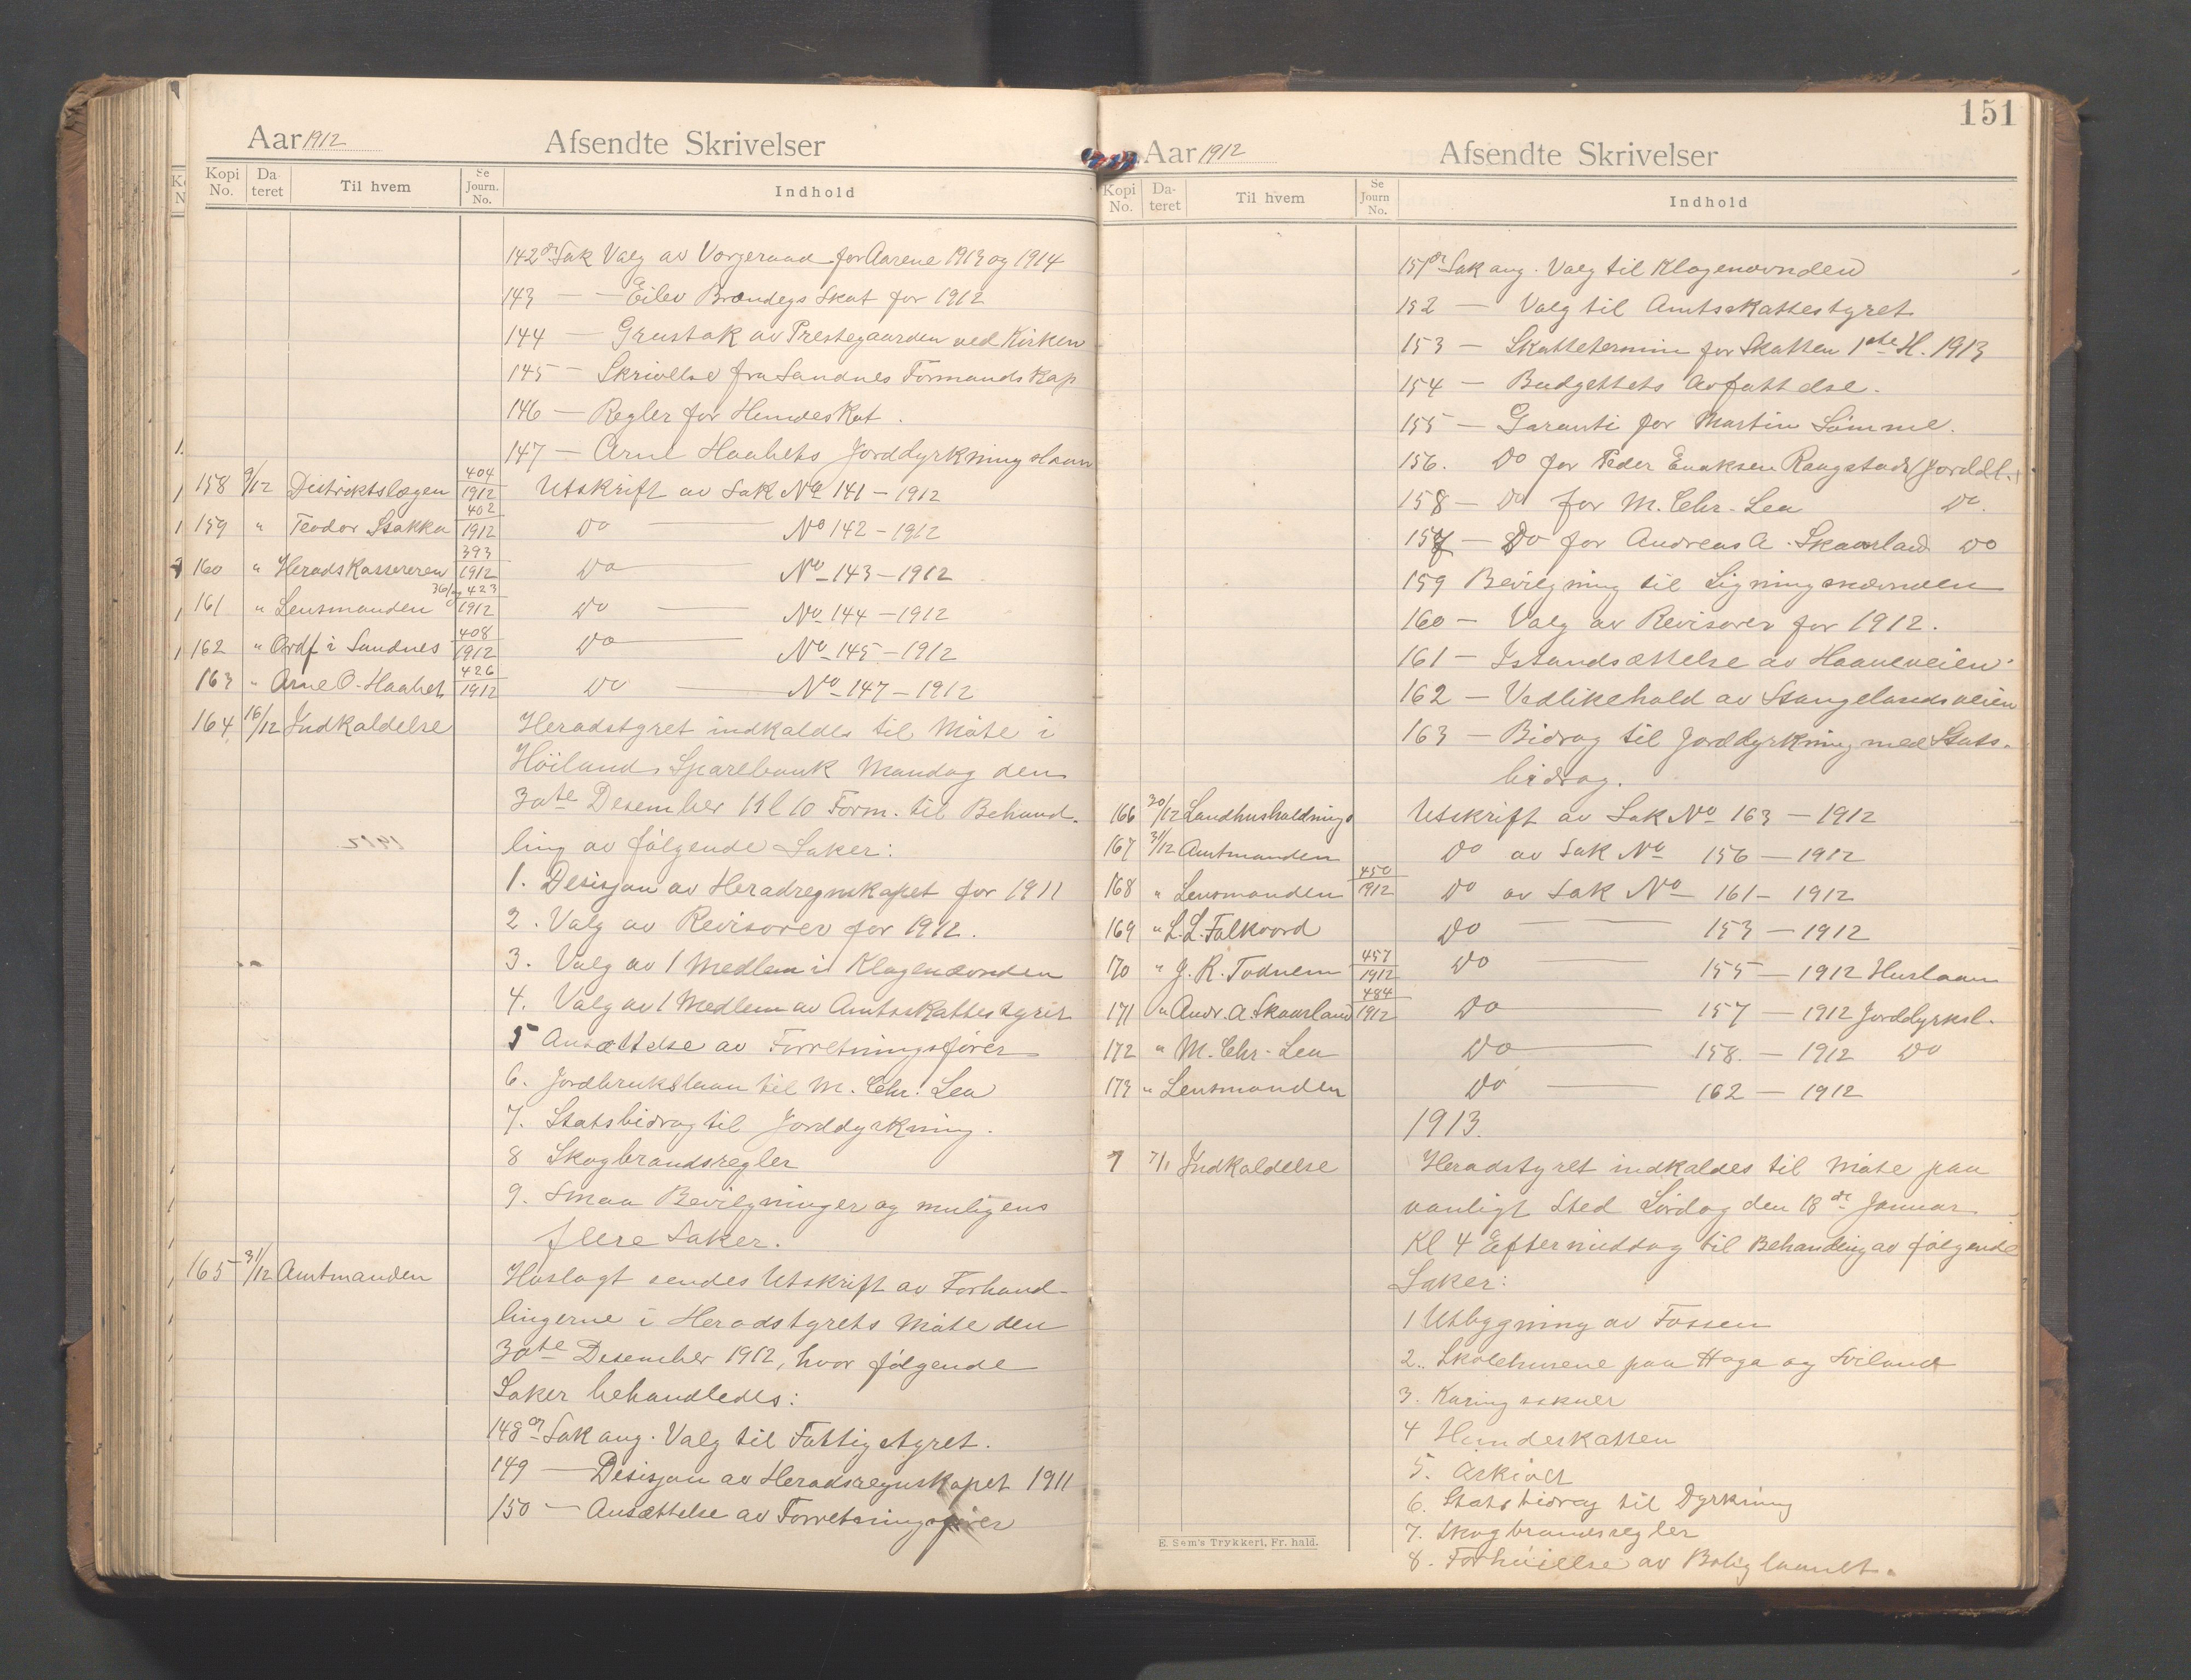 Aar 1912 Afsendte Skrivelser
Kopi No. Da teret Til hvem Se Journ. No. Indhold
142de Sak Valg av Vergeraad for Aarene 1913 og 1914
143 — Eilev Brændegs Skat for 1912
144 — Grustak av Prestegaarden ved Kirken
145 — Skrivelse fra Sandnes Formandskap
146 — Regler for Hundeskat.
147 — Arne Haahets Jorddyrkningslaan
158 9/12 Distriktslægen 404/1912 Utskrift av Sak No 141 – 1912
159 " Teodor Stakka 402/1912 Do — No 142 – 1912
160 " Heradskassereren 393/1912 Do — No 143 – 1912
161 " Lensmanden 423/1912 Do — No 144 – 1912
162 " Ordf. i Sandnes 408/1912 Do — No 145 – 1912
163 " Arne O. Haahet 426/1912 Do — No 147 – 1912
164 16/12 Indkaldelse Heradstyret indkaldes til Møte i
Höiland Sparebank Mandag den
30te Desember Kl 10 Form. til Behand-
ling av følgende Saker:
1. Desisjon av Heradregnskapet for 1911
2. Valg av Revisorer for 1912.
3. Valg av 1 Medlem i Klagenævnden
4. Valg av 1 Medlem av Amtsskattestyret
5 Ansættelse av Forretningsfører
6. Jordbrukslaan til M. Chr. Lea
7. Statsbidrag til Jorddyrkning.
8 Skogbrandsregler
9. Smaa Bevilgninger og muligens
flere Saker.
165 31/12 Amtmanden Hoslagt sendes Utskrift av Forhand-
lingerne i Heradstyrets Møte den
30te Desember 1912, hvor følgende
Saker behandledes:
148de Sak ang. Valg til Fattigstyret.
149 — Desisjon av Heradsregnskapet 1911
150 — Ansættelse av Forretningsfører
151
Aar 1912 Afsendte Skrivelser
Kopi No. Da- teret Til hvem Se Journ No. Indhold
151de Sak ang. Valg til Klagenævnden
152 — Valg til Amtsskattestyret
153 — Skattetermin for Skatten 1ste H. 1913
154 — Budgettets Avfattelse.
155 — Garanti for Martin Sømme.
156. Do for Peder Enoksen Raugstad (Jorddl.)
158 — Do for M. Chr. Lea Do.
157 — Do for Andreas A. Skaarland Do
159 Bevilgning til Ligningsnævnden
160 — Valg av Revisorer for 1912.
161 — Istandsættelse av Haaneveien
162 — Vedlikehold av Stangelandsveien
163 — Bidrag til Jorddyrkning med Stats-
bidrag.
166 30/12 Landhusholdnings Utskrift av Sak No 163 – 1912
167 31/12 Amtmanden Do av Sak No 156 – 1912
168 " Lensmanden 450/1912 Do av Sak No 161 – 1912
169 " L. L. Folkvord Do — 153 – 1912
170 " J. R. Todnem 457/1912 Do — 155 – 1912 Huslaan
171 " Andr. A. Skaarland 484/1912 Do — 157 – 1912 Jorddyrksl.
172 " M. Chr. Lea Do — 158. – 1912 Do
173 " Lensmanden Do — 162 – 1912
1913.
1 7/1 Indkaldelse Heradstyret indkaldes til Møte paa
vanligt Sted Lørdag den 18de Januar
Kl 4 Eftermiddag til Behandling av følgende
Saker:
1 Utbygning av Fossen
2. Skolehusene paa Hoga og Sviland
3. Kuringssakuer
4 Hundeskatten
5. Arkivet
6. Statsbidrag til Dyrkning
7. Skogbrandsregler
8. Forhøielse av Boliglaanet.
E. Sem's Trykkeri, Fr. hald.